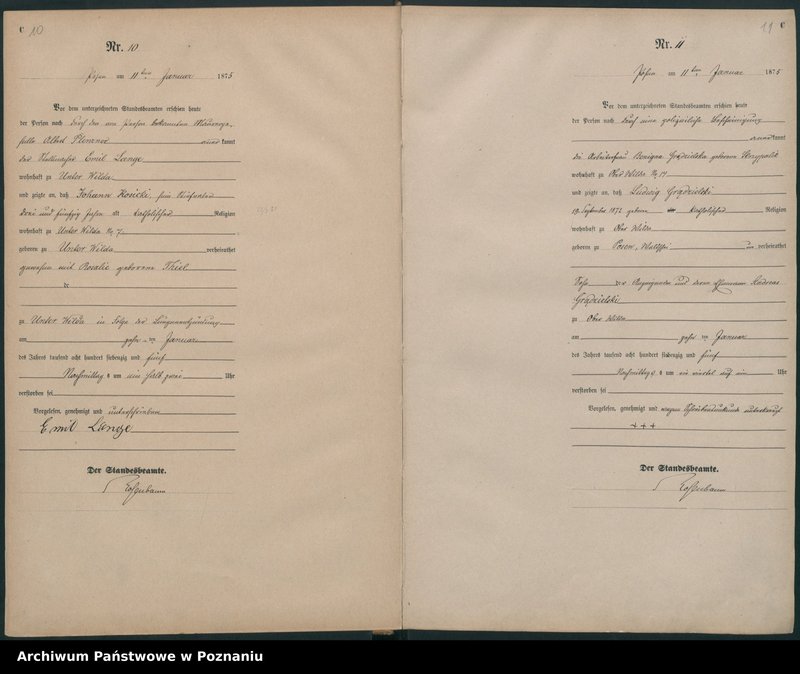 C 10
Nr. 10
Posen am 11ten Januar 1875
Vor dem unterzeichneten Standesbeamten erschien heute
der Person nach durch den von Person bekannten
Albert kannt
der Emil Lange
wohnhaft zu Unter Wilda
und zeigte an, daß Johann Kosicki, sein
drei und fünfzig Jahre alt katholischer Religion
wohnhaft zu Unter Wilda No 7
geboren zu Unter Wilda verheirathet
gewesen mit Rosalie geborene Thiel
de
zu Unter Wilda in Folge der Lungenentzündung
am Januar
des Jahres tausend acht hundert siebenzig und fünf
Nachmittags um ein halb zwei Uhr
verstorben sei
Vorgelesen, genehmigt und unterschrieben
Emil Lange
Der Standesbeamte.
11 C
Nr. 11
Posen am 11ten Januar 1875
Vor dem unterzeichneten Standesbeamten erschien heute
der Person nach durch eine polizeiliche Bescheinigung
kannt
die Arbeiterfrau Benigna Grądzielska geborene
wohnhaft zu Ober Wilda No 14
und zeigte an, daß Ludwig Grądzielski
19. September 1872 geboren katholischer Religion
wohnhaft zu Ober Wilda
geboren zu Posen, un verheirathet
Sohn der und deren Ehemann Andreas
Grądzielski
zu Ober Wilda
am Januar
des Jahres tausend acht hundert siebenzig und fünf
Nachmittags um ein viertel auf ein Uhr
verstorben sei
Vorgelesen, genehmigt und wegen
+++
Der Standesbeamte.
Archiwum Państwowe w Poznaniu